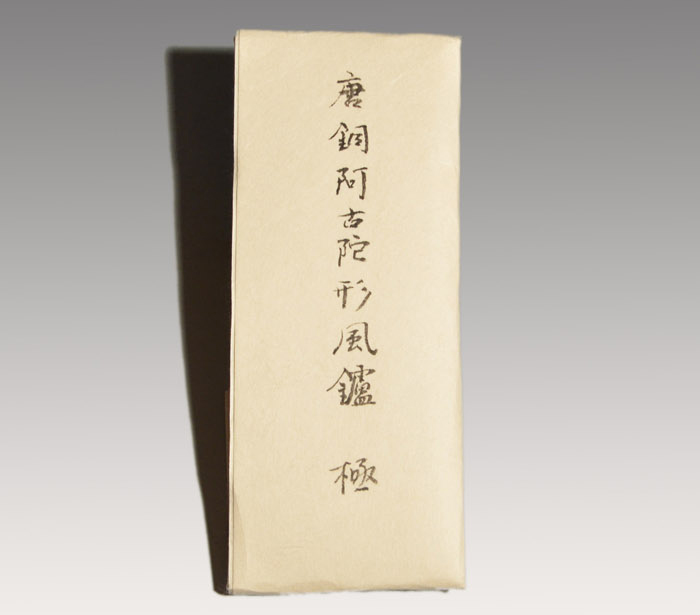 唐銅阿古陀形風鑪 極